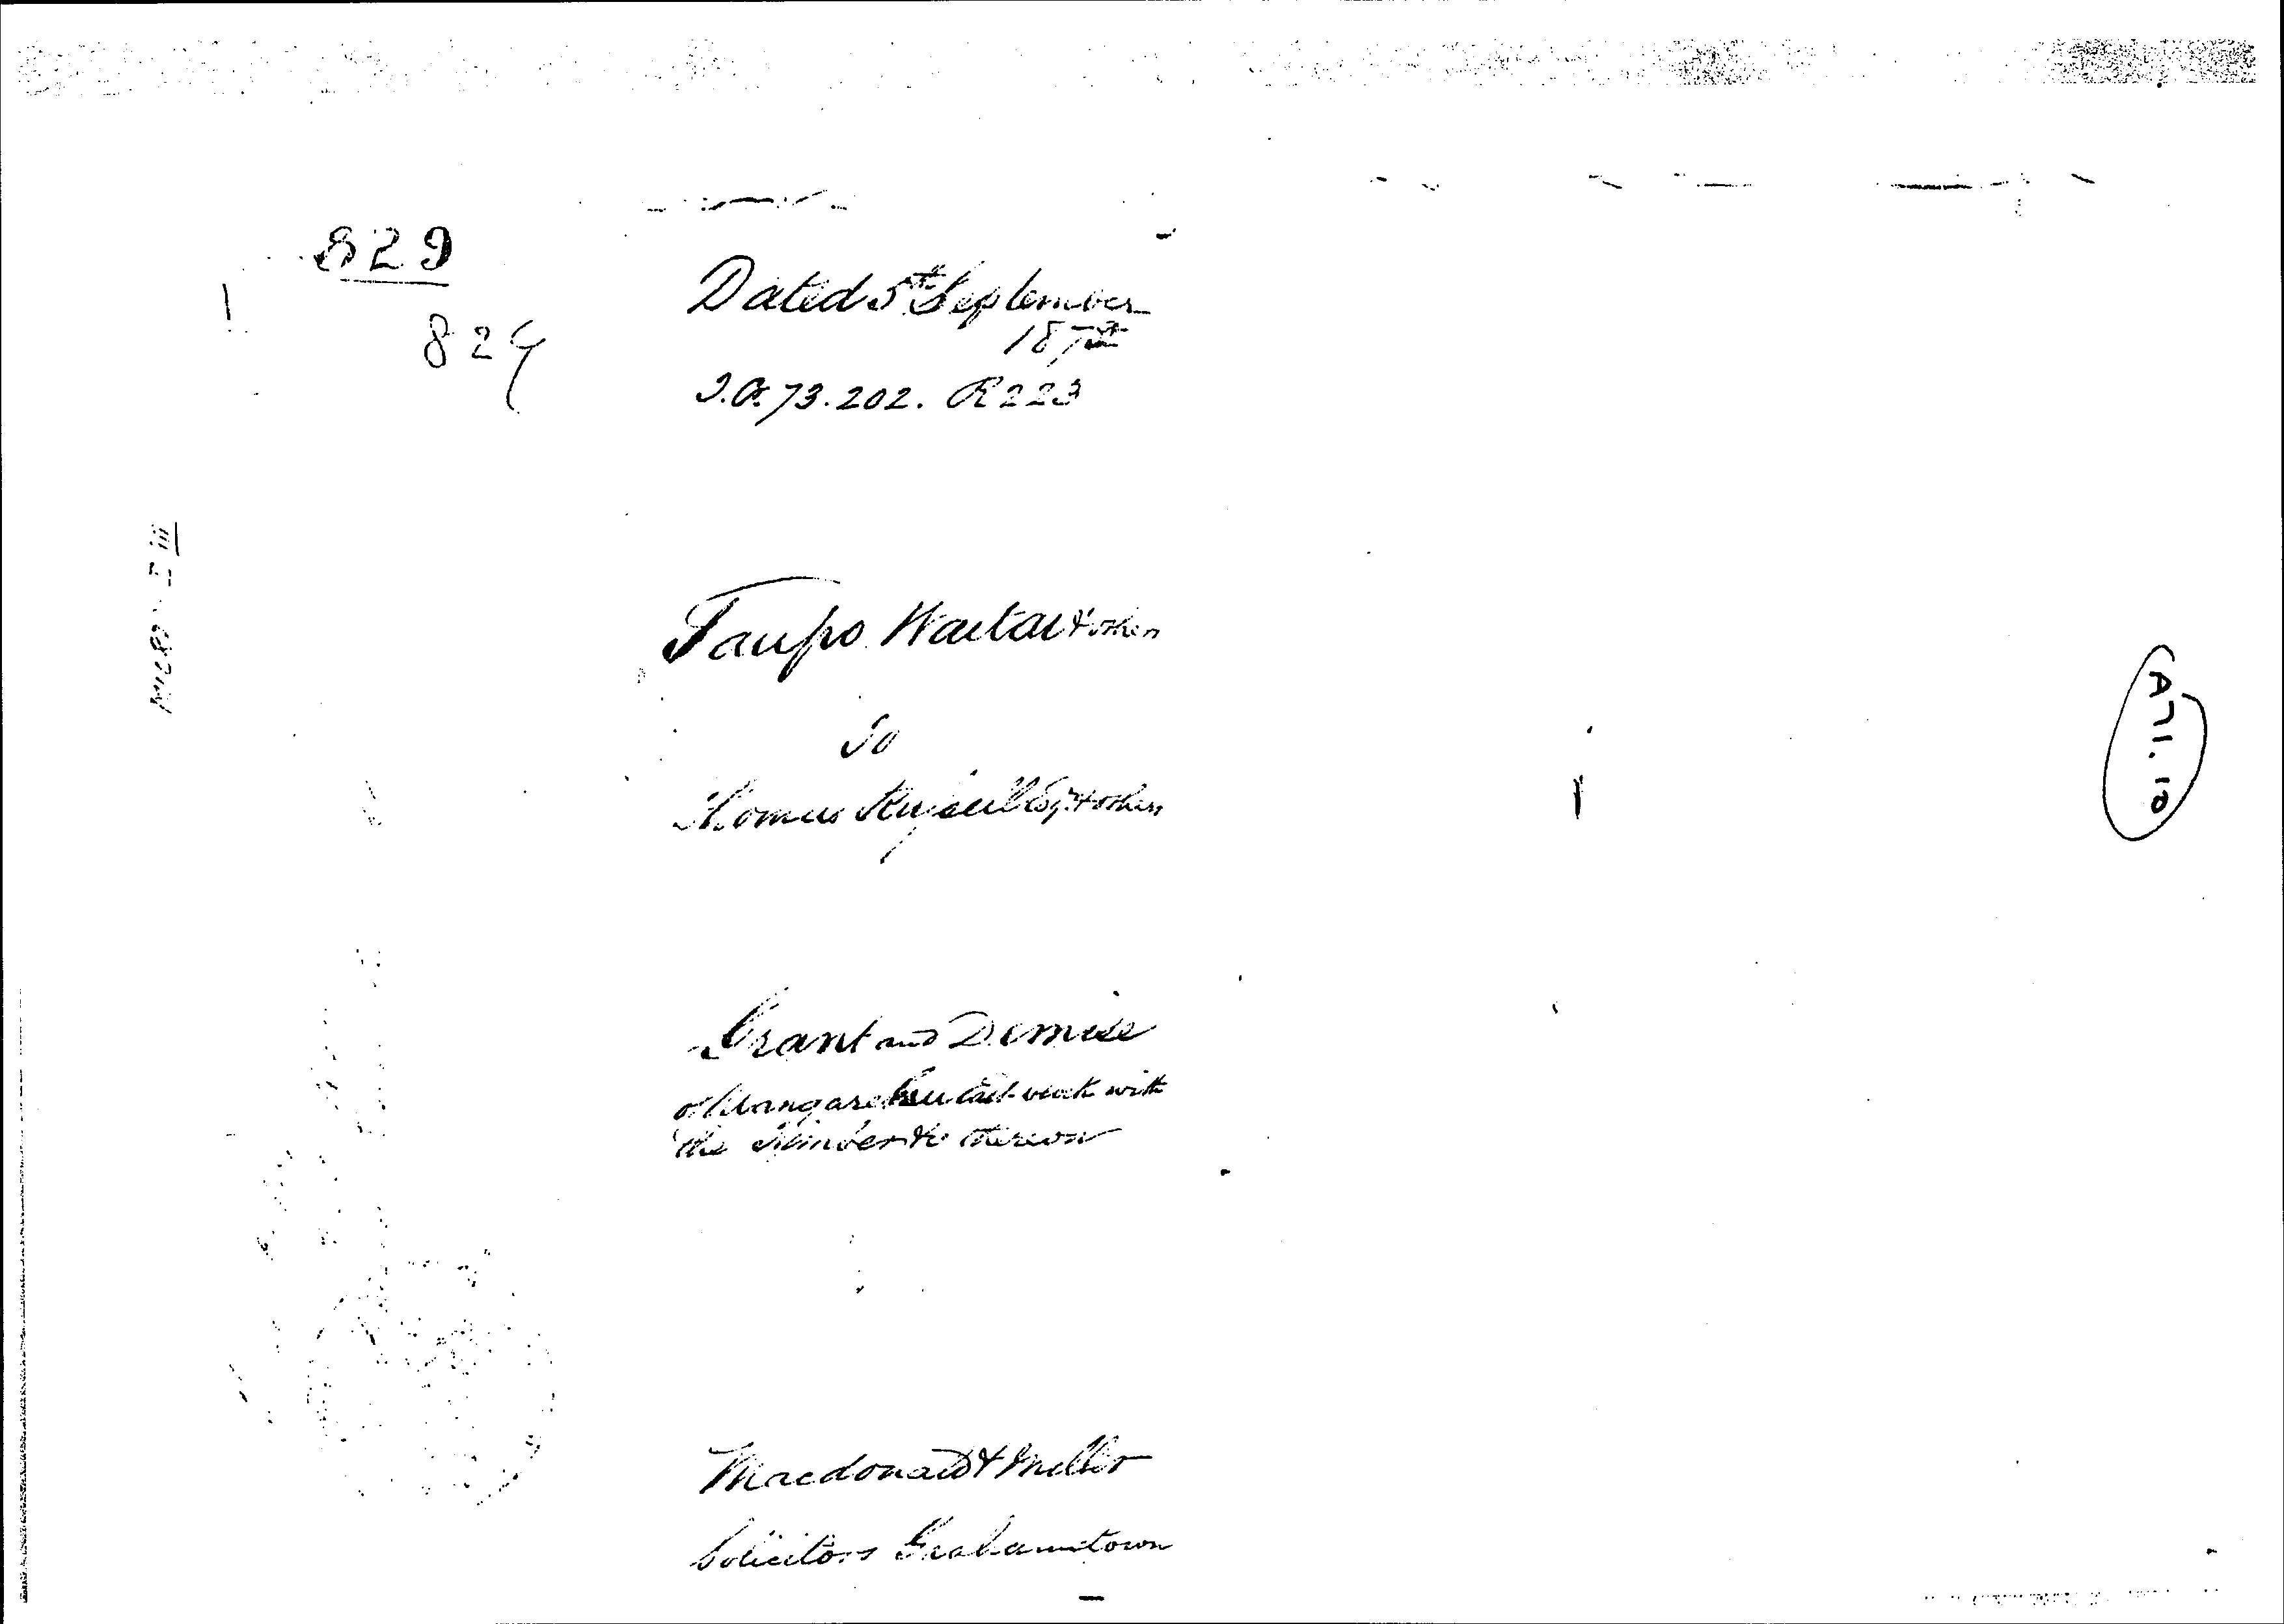 829
824
Dated 5th September
187
J.A. 73.202. R223
Taupo Waitai & others
To
Thomas Russell Esq. & others
Grant and Demise
of block with
the Timber &c thereon
Macdonald & Miller
Solicitors Grahamstown
A71.10